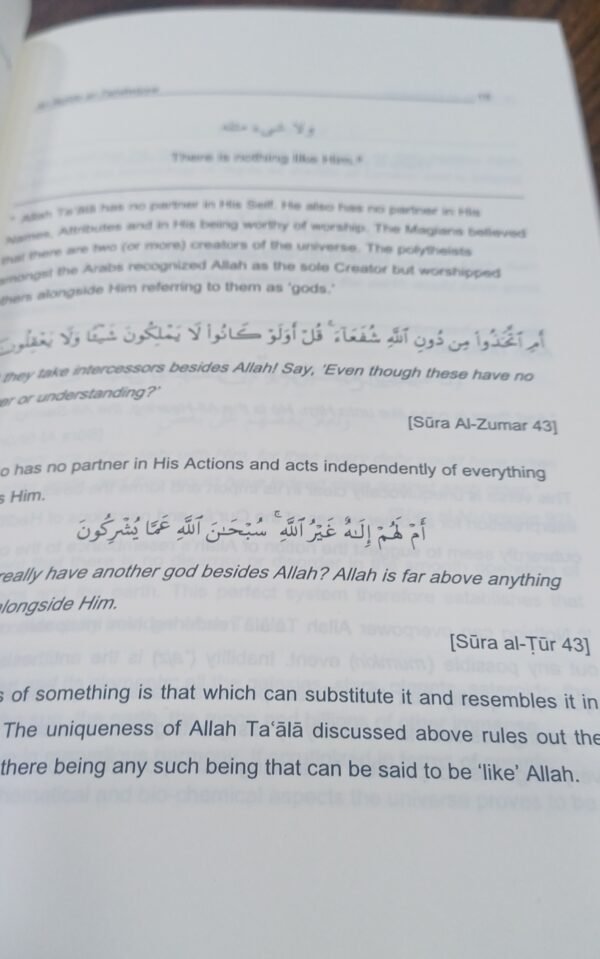 ولا شيء مثله
There is nothing like Him.
Allah Ta'ālā has no partner in His Self. He also has no partner in His
Names, Attributes and in His being worthy of worship. The Magians believed
that there are two (or more) creators of the universe. The polytheists
amongst the Arabs recognized Allah as the sole Creator but worshipped
thers alongside Him referring to them as 'gods.'
أَمِ ٱتَّخَذُوا۟ مِن دُونِ ٱللَّهِ شُفَعَآءَ ۚ قُلْ أَوَلَوْ كَانُوا۟ لَا يَمْلِكُونَ شَيْـًٔا وَلَا يَعْقِلُونَ
they take intercessors besides Allah! Say, 'Even though these have no
er or understanding?'
[Sūra Al-Zumar 43]
o has no partner in His Actions and acts independently of everything
s Him.
أَمْ لَهُمْ إِلَـٰهٌ غَيْرُ ٱللَّهِ ۚ سُبْحَـٰنَ ٱللَّهِ عَمَّا يُشْرِكُونَ
really have another god besides Allah? Allah is far above anything
longside Him.
[Sūra al-Ṭūr 43]
s of something is that which can substitute it and resembles it in
The uniqueness of Allah Ta‘ālā discussed above rules out the
there being any such being that can be said to be 'like' Allah.